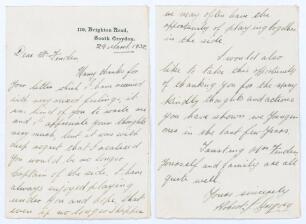 119, Brighton Road,
South Croydon.
29 March 1938
Dear Mr Fender
Many thanks for
your letter which I have received
with very mixed feelings, it
was kind of you to write me
and I appreciate your thoughts
very much but it was with
deep regret that I realised
you would be no longer
Captain of the side. I have
always enjoyed playing
under you and hope that
even if no longer skipper
we may often have the
opportunity of playing together
in the side
I would also
like to take this opportunity
of thanking you for the many
kindly thoughts and actions
you have shown we younger
ones in the last few years.
Trusting Mrs Fender
yourself and family are all
quite well
Yours sincerely
Robert J. Gregory